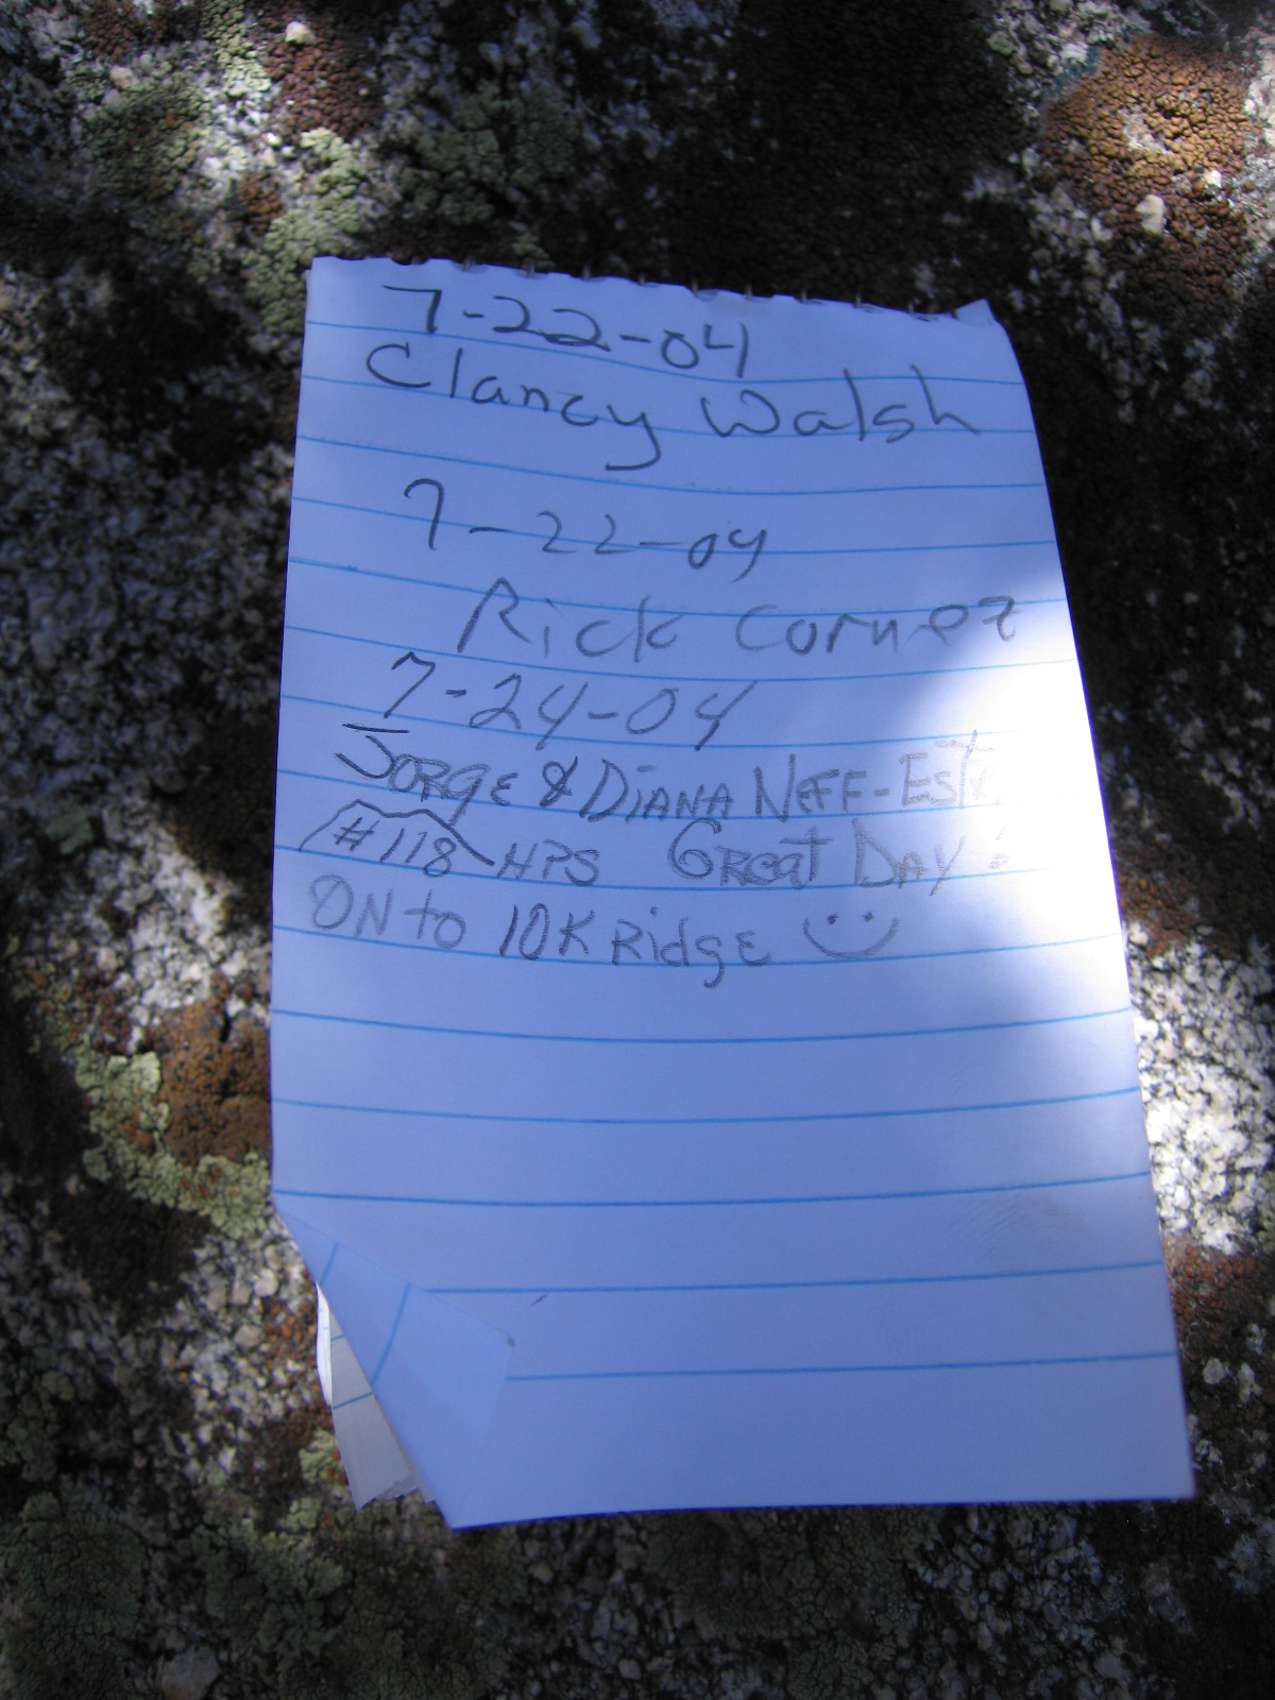 7-22-04
Clancy Walsh
7-22-04
Rick Corner
7-24-04
JORGE & DIANA NEFF-
#118 HPS GREAT DAY!
ON to 10K RidgE